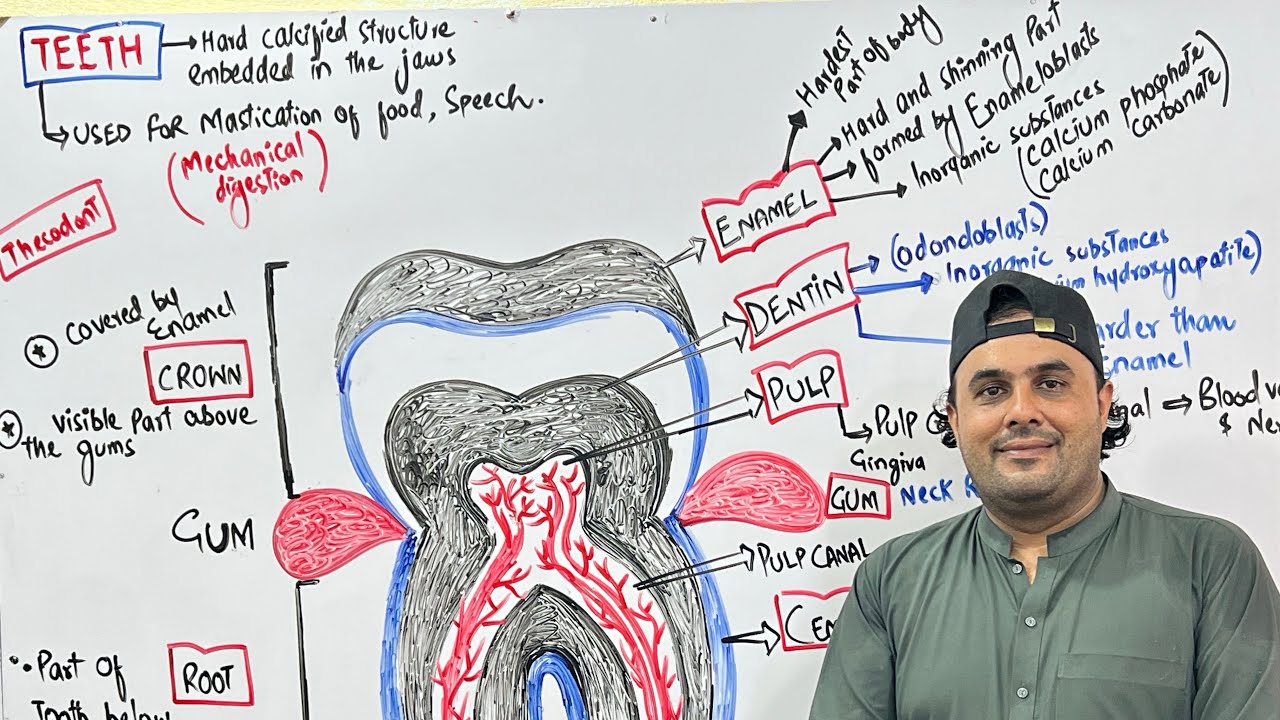 TEETH
Hard calcified structure
embedded in the jaws
USED FOR Mastication of food, Speech.
(Mechanical
digestion)
Thecodont
covered by
Enamel
CROWN
visible part above
the gums
GUM
Part of
Tooth below
ROOT
Hardest
Part of body
Hard and shinning Part
formed by Enameloblasts
Inorganic substances
(calcium phosphate
calcium carbonate)
ENAMEL
DENTIN
(odondoblasts)
Inorganic substances
hydroxyapatite)
than
PULP
Pulp
Blood
&
Gingiva
GUM
Neck
PULP CANAL